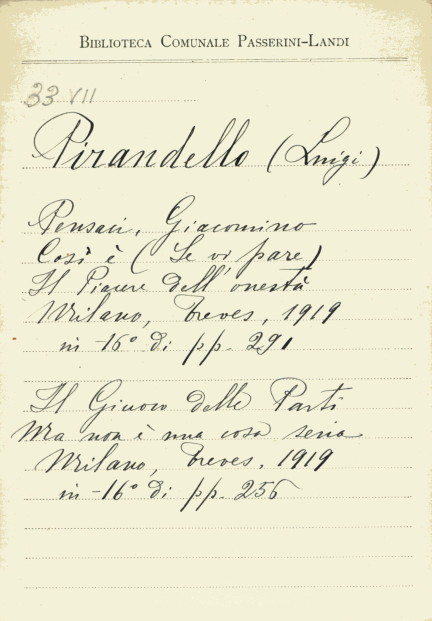 BIBLIOTECA COMUNALE PASSERINI-LANDI
33 VII
Pirandello (Luigi)
Pensaci, Giacomino
Così è (Se vi pare)
Il Piacere dell'onestà
Milano, Treves, 1919
in -16° di pp. 291
Il Giuoco delle Parti
Ma non è una cosa seria
Milano, Treves, 1919
in -16° di pp. 256